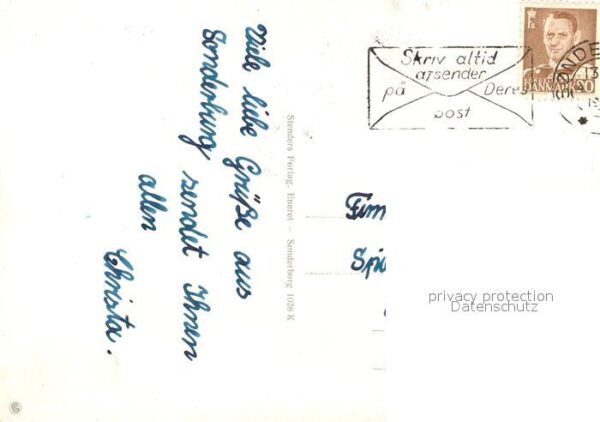 Viele liebe Grüße aus
Sonderburg sendet Ihnen
allen
Christa.
Stenders Forlag. Eneret — Sonderborg 1028 K
Skriv altid
afsender
på Deres
post
DANMARK 20
ØNDE
13
Fim
Spi
privacy protection
Datenschutz